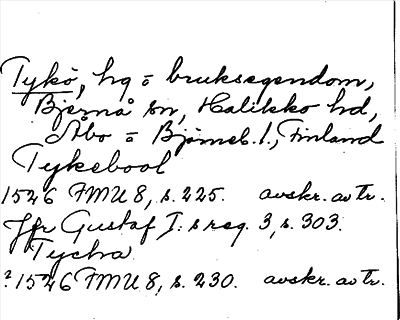 Tykö, hg = bruksegendom,
Bjärnå sn, Halikko hd,
Åbo = Björneb. l., Finland
Tykebool
1526 FMU 8, s. 225. avskr. av tr.
Jfr Gustaf I:s reg. 3, s. 303.
Tycha
? 1526 FMU 8, s. 230. avskr. av tr.